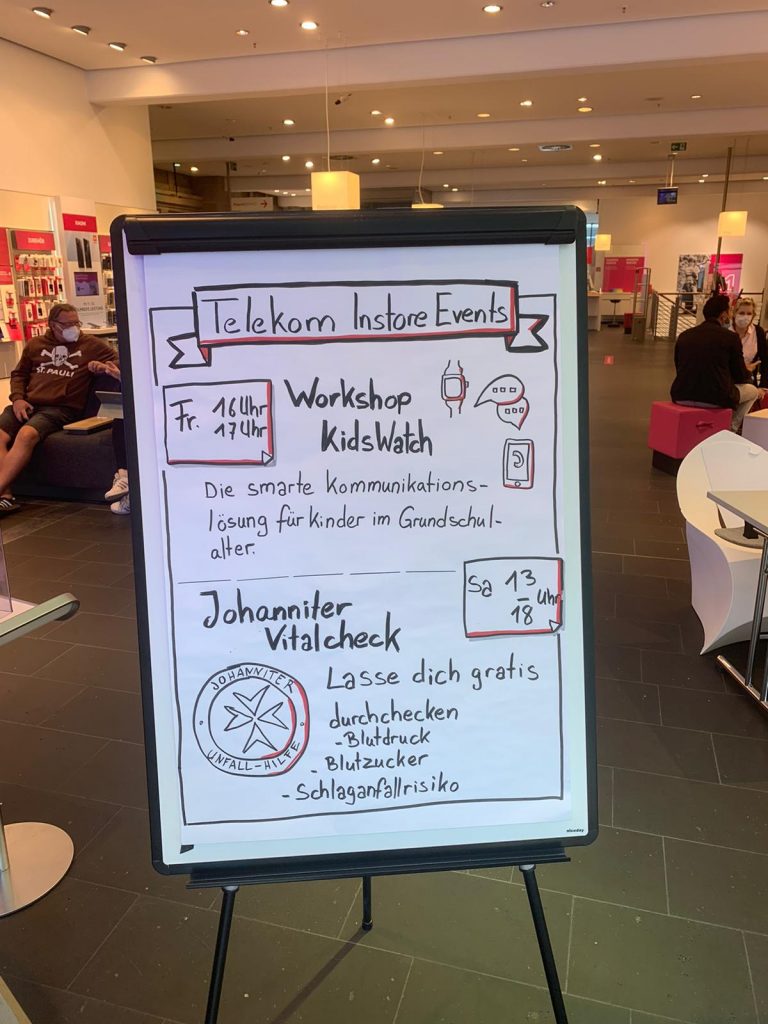 Telekom Instore Events
Fr. 16 Uhr
17 Uhr
Workshop
KidsWatch
Die smarte Kommunikations-
lösung für Kinder im Grundschul-
alter.
Sa 13
-
18 Uhr
Johanniter
Vitalcheck
JOHANNITER
UNFALL-HILFE
Lasse dich gratis
durchchecken
- Blutdruck
- Blutzucker
- Schlaganfallrisiko
niceday
ST. PAULI
ZUBEHÖR